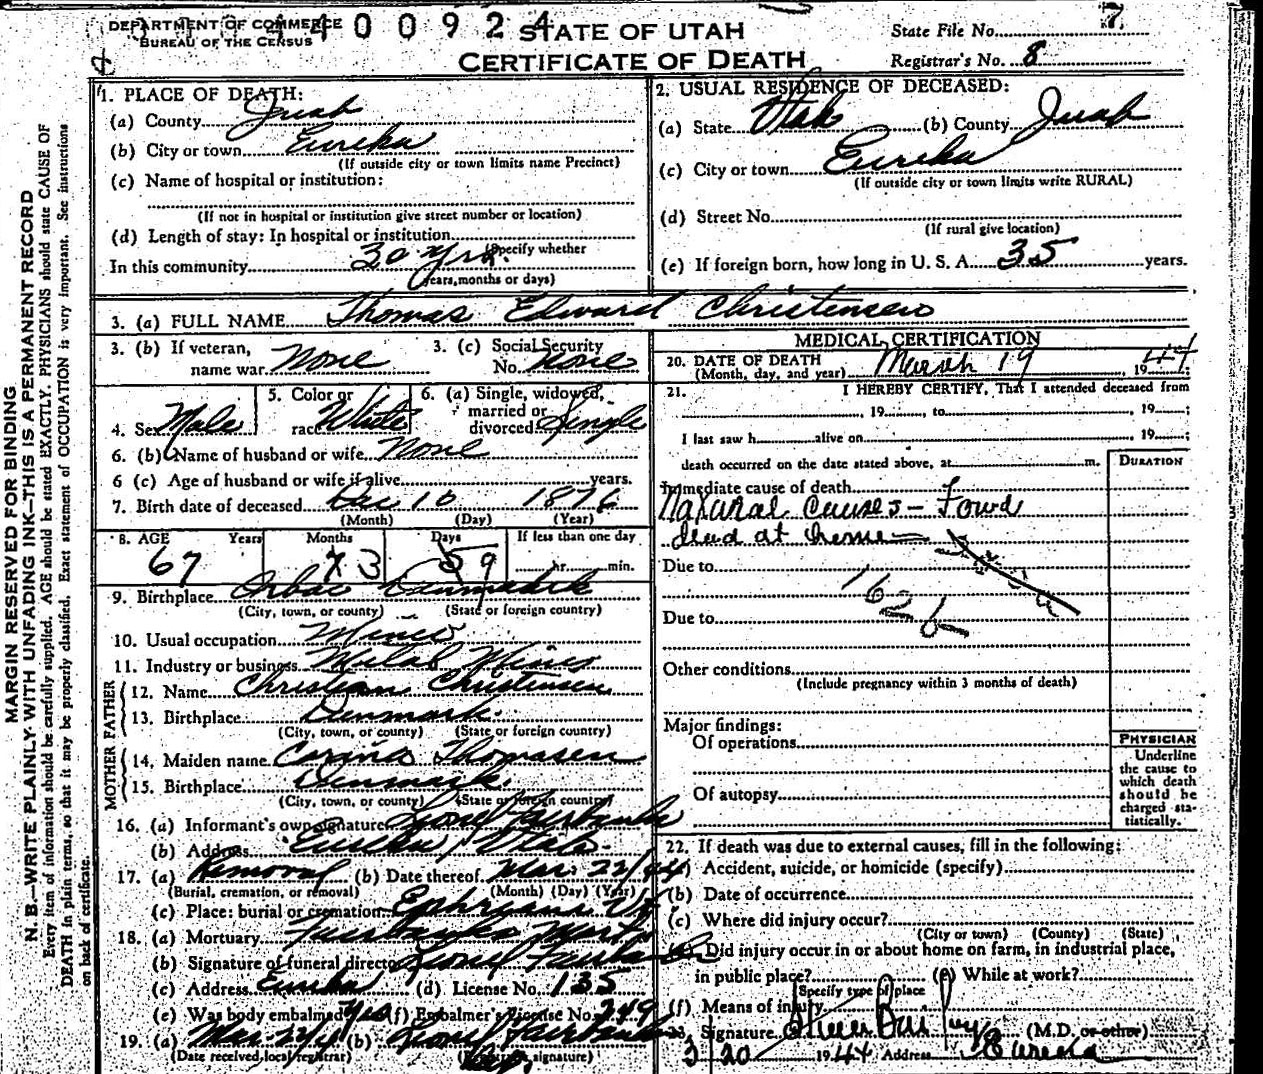 DEPARTMENT OF COMMERCE
BUREAU OF THE CENSUS
4 0 0 9 2 4
STATE OF UTAH
CERTIFICATE OF DEATH
State File No. 7
Registrar's No. 8
MARGIN RESERVED FOR BINDING
N. B.—WRITE PLAINLY WITH UNFADING INK—THIS IS A PERMANENT RECORD
Every item of information should be carefully supplied. AGE should be stated EXACTLY. PHYSICIANS should state CAUSE OF
DEATH in plain terms, so that it may be properly classified. Exact statement of OCCUPATION is very important. See instructions
on back of certificate.
1. PLACE OF DEATH:
(a) County Juab
(b) City or town Eureka
(If outside city or town limits name Precinct)
(c) Name of hospital or institution:
(If not in hospital or institution give street number or location)
(d) Length of stay: In hospital or institution
(Specify whether
In this community 30 yrs.
years, months or days)
2. USUAL RESIDENCE OF DECEASED:
(a) State Utah (b) County Juab
(c) City or town Eureka
(If outside city or town limits write RURAL)
(d) Street No.
(If rural give location)
(e) If foreign born, how long in U. S. A. 35 years.
3. (a) FULL NAME Thomas Edward Christensen
3. (b) If veteran,
name war None
3. (c) Social Security
No. None
4. Sex Male
5. Color or
race White
6. (a) Single, widowed,
married or
divorced Single
6. (b) Name of husband or wife None
6 (c) Age of husband or wife if alive years.
7. Birth date of deceased Dec 10 1876
(Month) (Day) (Year)
8. AGE Years Months Days If less than one day
67 3 9 hr. min.
9. Birthplace Denmark
(City, town, or county) (State or foreign country)
10. Usual occupation Miner
11. Industry or business Metal Mines
FATHER
12. Name Christian Christensen
13. Birthplace Denmark
(City, town, or county) (State or foreign country)
MOTHER
14. Maiden name Thomasen
15. Birthplace Denmark
(City, town, or county) (State or foreign country)
16. (a) Informant's own signature Lionel Fairbanks
(b) Address Eureka, Utah
17. (a) Removal (b) Date thereof Mar. 22/44
(Burial, cremation, or removal) (Month) (Day) (Year)
(c) Place: burial or cremation Ephraim Ut
18. (a) Mortuary Fairbanks Mort.
(b) Signature of funeral director Lionel Fairbanks
(c) Address Eureka (d) License No. 135
(e) Was body embalmed Yes (f) Embalmer's License No. 249
19. (a) Mar. 22/44 (b) Lionel Fairbanks
(Date received local registrar) (Registrar's signature)
Dep.
MEDICAL CERTIFICATION
20. DATE OF DEATH
(Month, day, and year) March 19, 1944;
21. I HEREBY CERTIFY, That I attended deceased from
, 19 , to , 19 ;
I last saw h alive on , 19 ;
death occurred on the date stated above, at m.
DURATION
Immediate cause of death
Natural Causes - Found
dead at home
Due to
162b
Due to
Other conditions
(Include pregnancy within 3 months of death)
Major findings:
Of operations
Of autopsy
PHYSICIAN
Underline
the cause to
which death
should be
charged sta-
tistically.
22. If death was due to external causes, fill in the following:
(a) Accident, suicide, or homicide (specify)
(b) Date of occurrence
(c) Where did injury occur?
(City or town) (County) (State)
(d) Did injury occur in or about home on farm, in industrial place,
in public place? (e) While at work?
(Specify type of place
(f) Means of injury
23. Signature (M.D. or other)
3/20 1944 Address Eureka